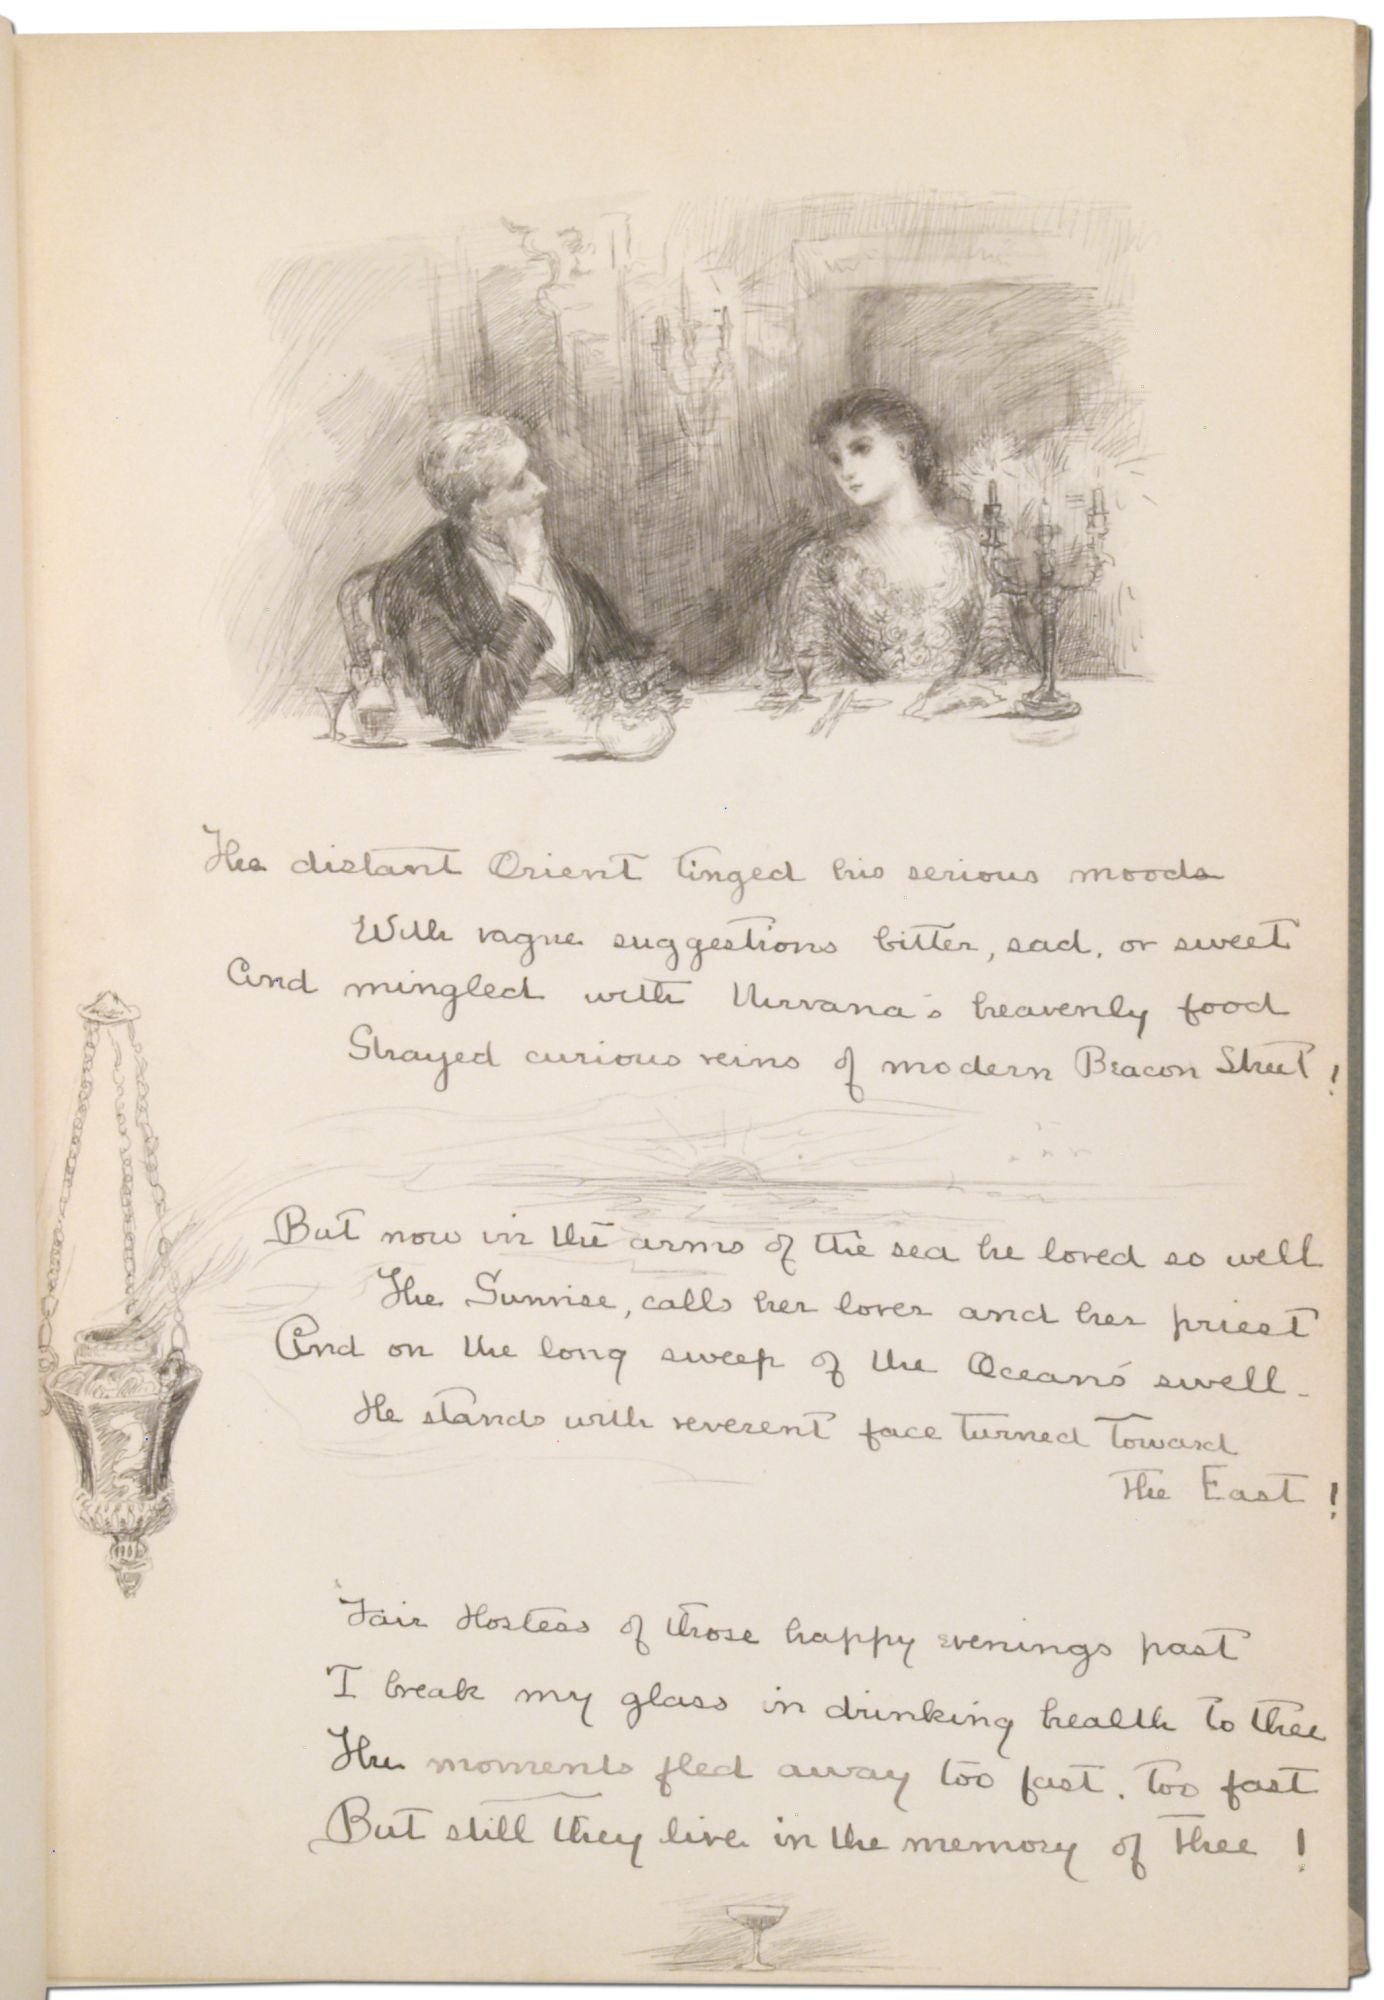 The distant Orient tinged his serious moods
With vague suggestions bitter, sad, or sweet
And mingled with Nirvana's heavenly food
Strayed curious veins of modern Beacon Street!
But now in the arms of the sea he loved so well
The Sunrise, calls her lover and her priest
And on the long sweep of the Ocean's swell -
He stands with reverent face turned toward
the East!
Fair Hostess of those happy evenings past
I break my glass in drinking health to thee
The moments fled away too fast, too fast
But still they live in the memory of thee!